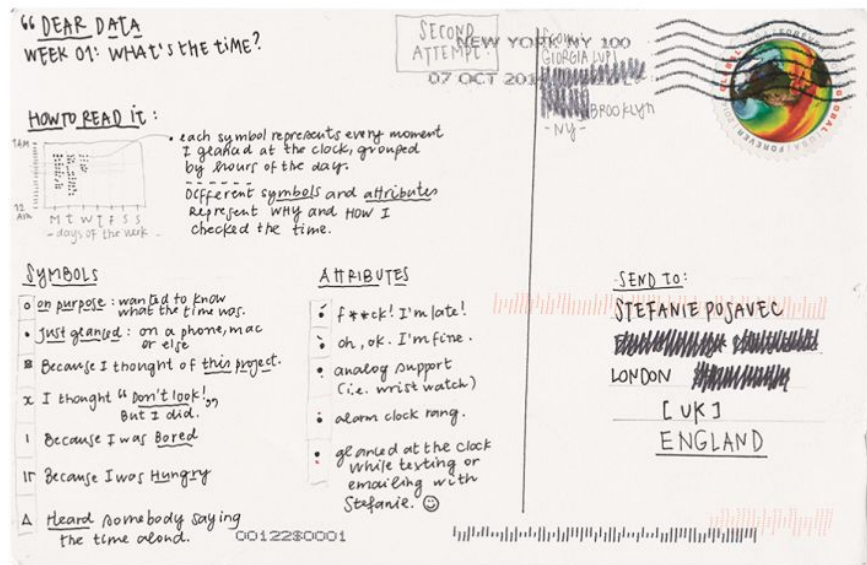 “ DEAR DATA
WEEK 01: WHAT'S THE TIME?
SECOND
ATTEMPT.
NEW YORK NY 100
07 OCT 201
FROM:
GIORGIA LUPI
BROOKLYN
- NY -
GLOBAL
USA FOREVER 2014
HOW TO READ IT:
7AM
12
AM
M T W T F S S
- days of the week -
• each symbol represents every moment
I glanced at the clock, grouped
by hours of the day.
Different symbols and attributes
Represent WHY and HOW I
checked the time.
SYMBOLS
on purpose: wanted to know
what the time was.
Just glanced: on a phone, mac
or else
Because I thought of this project.
x I thought “Don't look!„
But I did.
Because I was Bored
Because I was Hungry
Heard somebody saying
the time aloud.
ATTRIBUTES
f**ck! I'm late!
oh, ok. I'm fine.
analog support
(i.e. wrist watch)
alarm clock rang.
glanced at the clock
while texting or
emailing with
Stefanie. ☺
SEND TO:
STEFANIE POSAVEC
LONDON
[UK]
ENGLAND
00122$0001